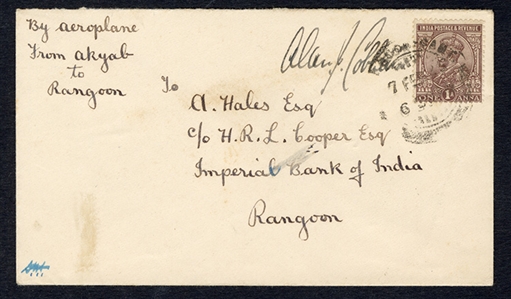 By aeroplane
From akyab
to
Rangoon
Alan J. Cobham
INDIA POSTAGE & REVENUE
1A
ONE ANNA
7 FE
6
To
A. Hales Esq
c/o H. R. L. Cooper Esq
Imperial Bank of India
Rangoon